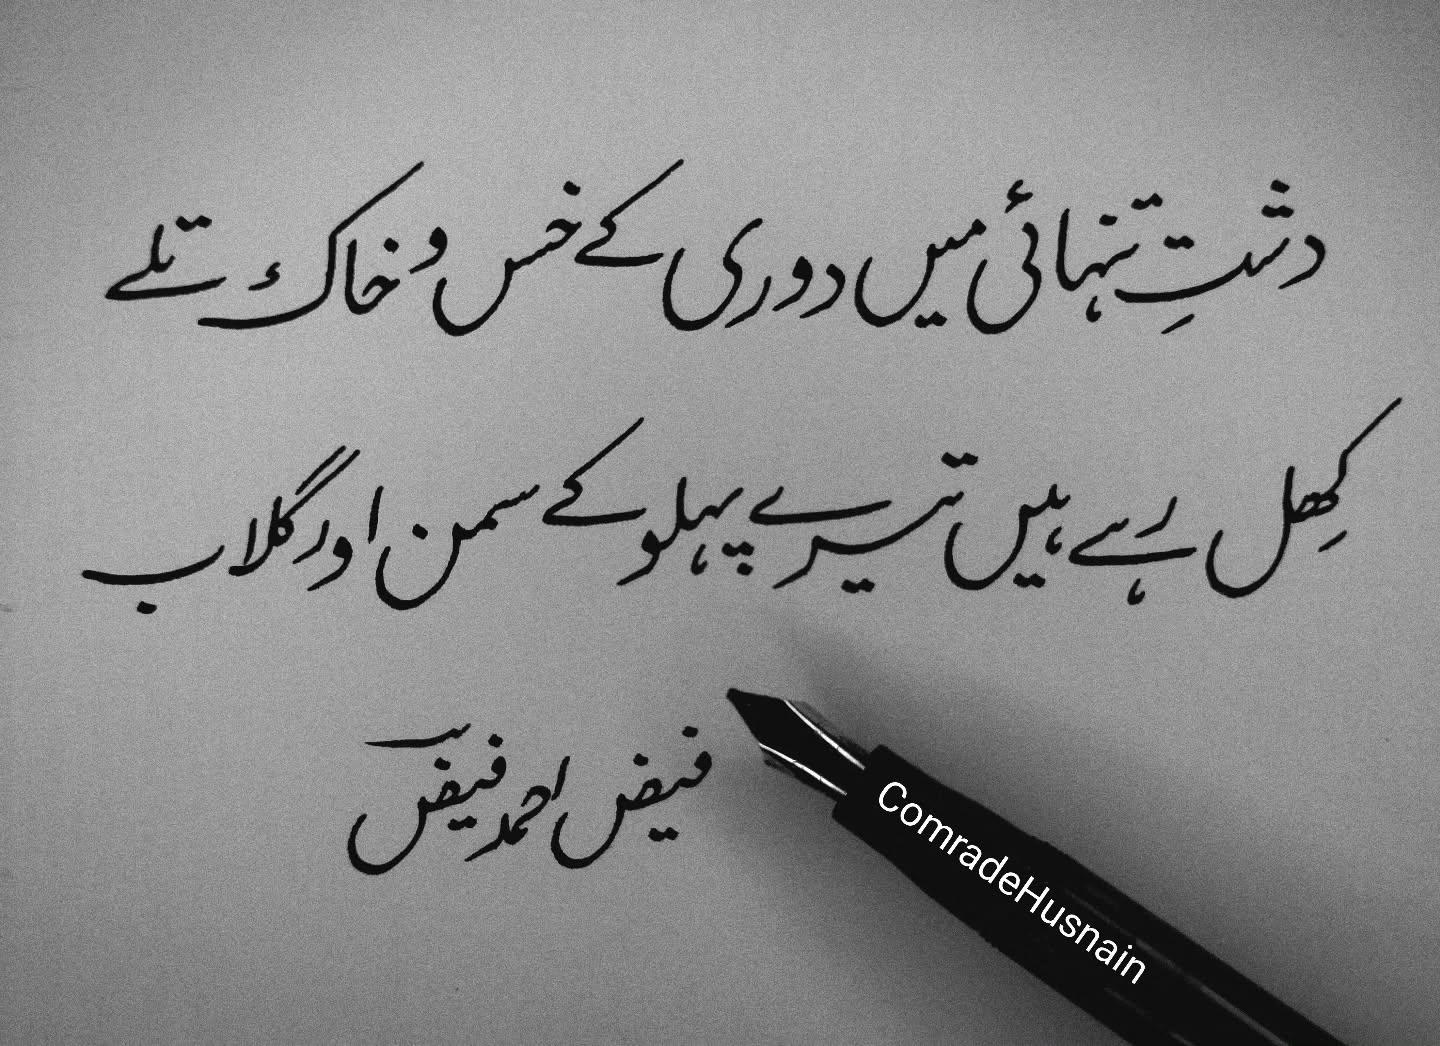 دشتِ تنہائی میں دوری کے خس و خاک تلے
کِھل رہے ہیں تیرے پہلو کے سمن اور گلاب
فیض احمد فیضؔ
ComradeHusnain